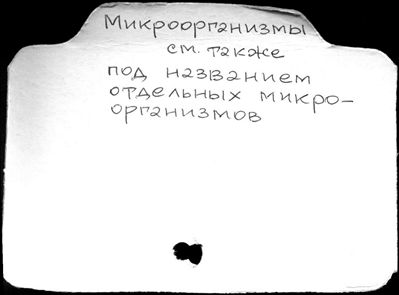 Микроорганизмы
см. также
под названием
отдельных микро-
организмов